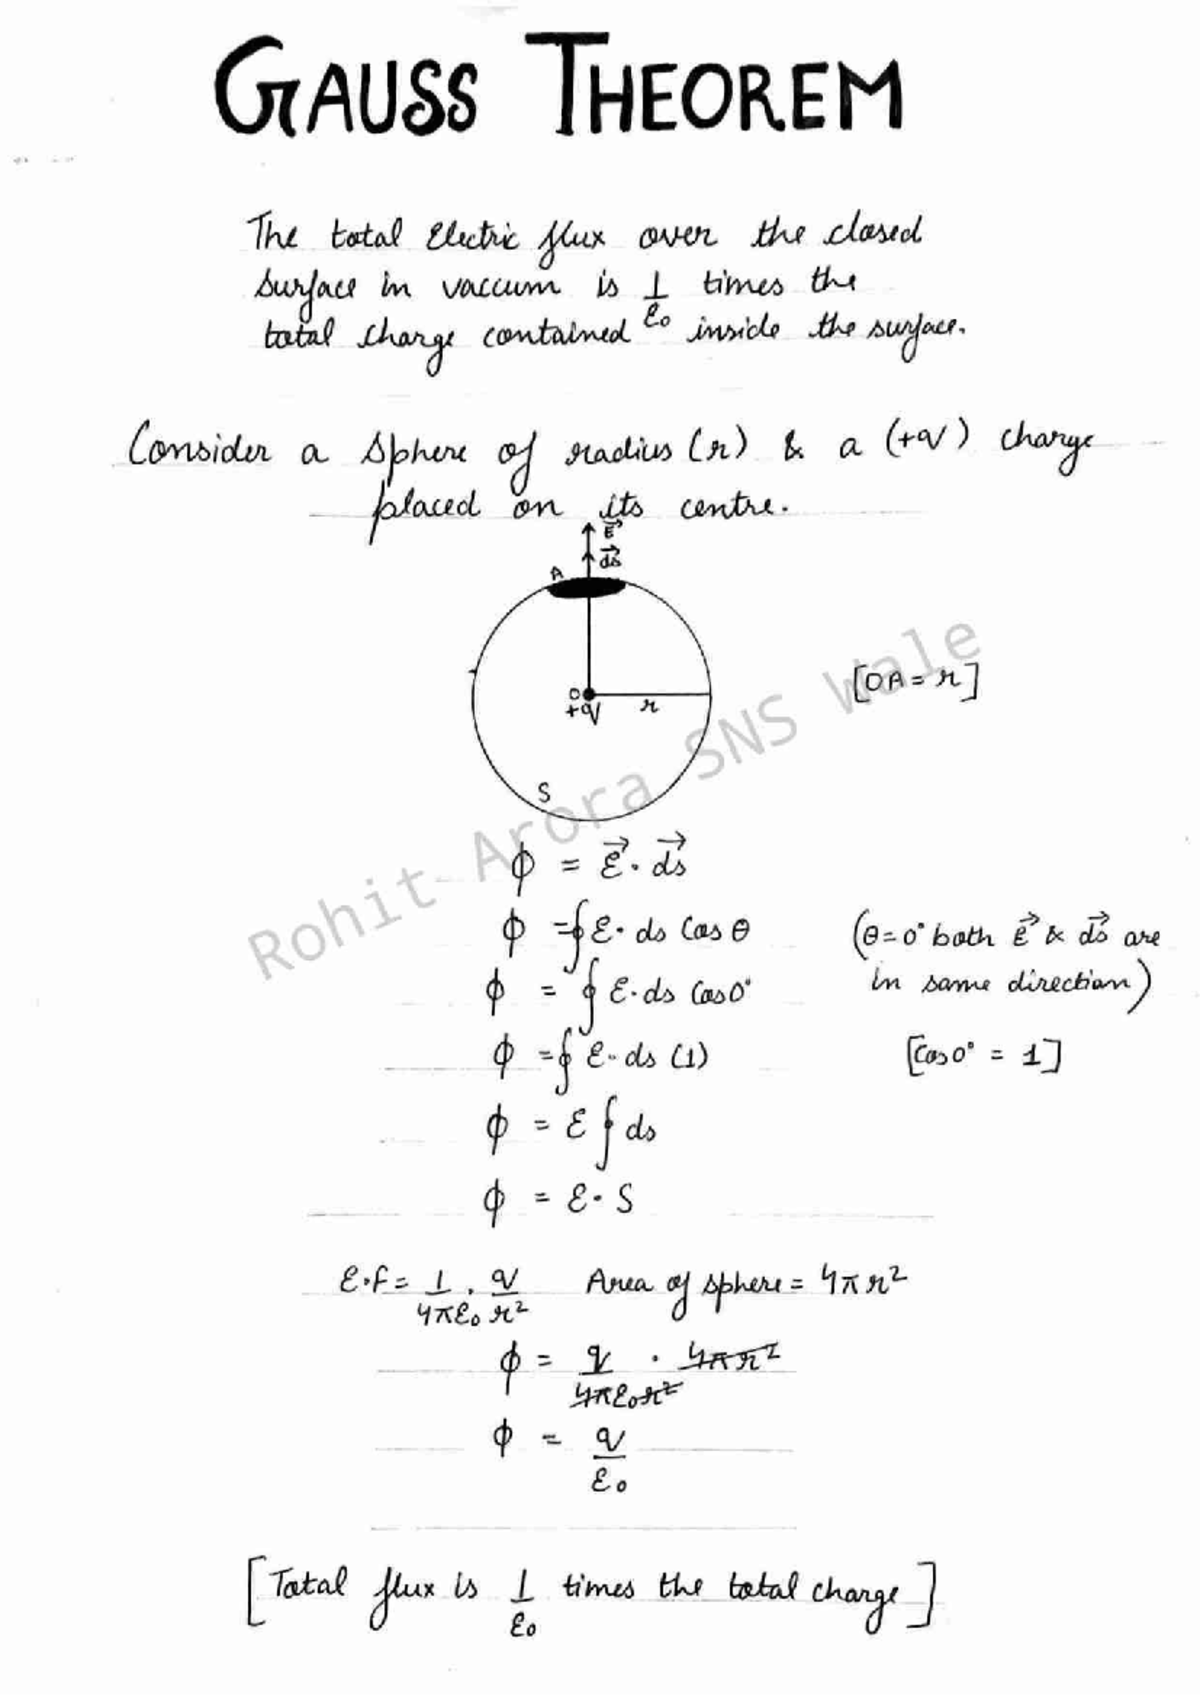 GAUSS THEOREM
The total Electric flux over the closed
surface in vaccum is 1/ε₀ times the
total charge contained inside the surface.
Consider a sphere of radius (r) & a (+q) charge
placed on its centre.
E⃗
ds⃗
A
O
+q r
[OA = r]
S
Rohit Arora SNS Wale
ϕ = E⃗ . ds⃗
ϕ = ∮ E. ds Cos θ (θ = 0° both E⃗ & ds⃗ are
in same direction)
ϕ = ∮ E. ds Cos 0°
ϕ = ∮ E. ds (1) [Cos 0° = 1]
ϕ = E ∮ ds
ϕ = E. S
E.F = 1/4πε₀ . q/r² Area of sphere = 4πr²
ϕ = q/4πε₀r² . 4πr²
ϕ = q/ε₀
[Total flux is 1/ε₀ times the total charge]